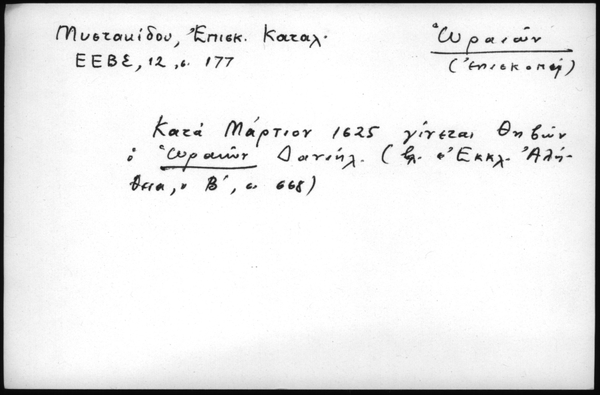 Μυστακίδου, Ἐπισκ. Καταλ.
ΕΕΒΣ, 12, σ. 177
Ὠραιῶν
(Ἐπισκοπή)
Κατὰ Μάρτιον 1625 γίνεται Θηβῶν
ὁ Ὠραιῶν Δανιήλ. (βλ. «Ἐκκλ. Ἀλή-
θεια,» Β΄, σ. 668)